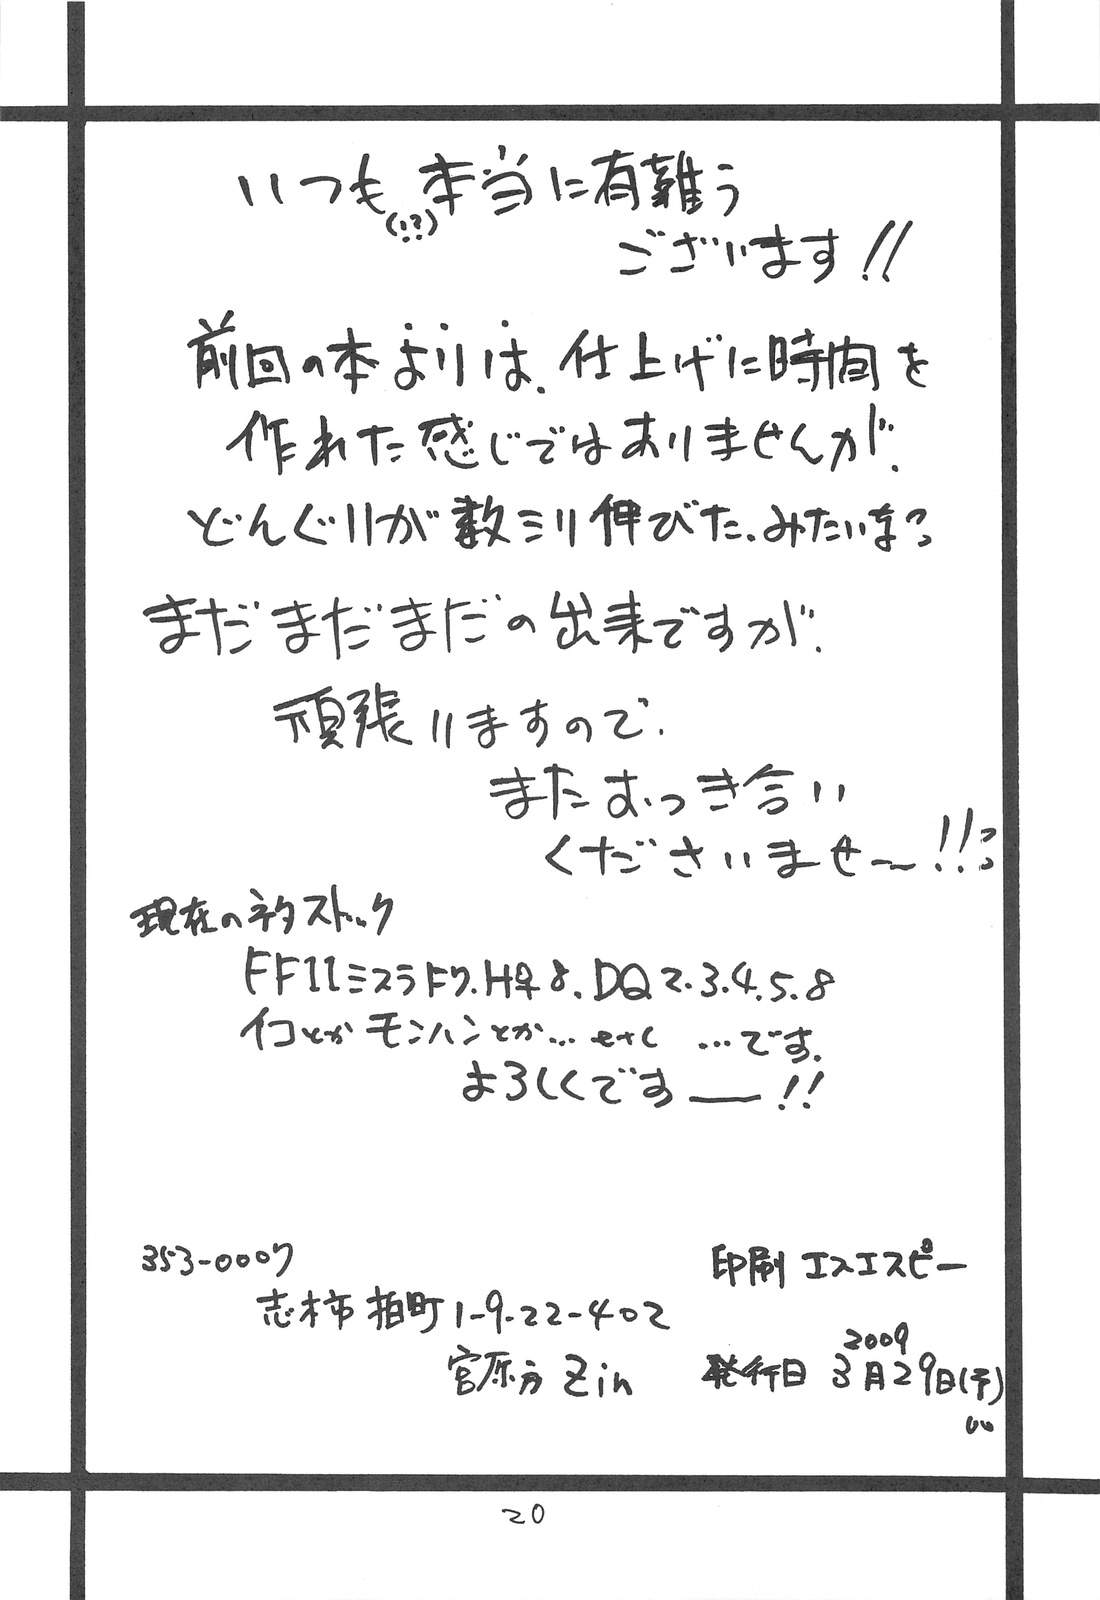 いつも(!?)本当に有難う
ございます!!
前回の本よりは、仕上げに時間を
作れた感じではありませんが、
どんぐりが数ミリ伸びた、みたいな?
まだまだまだの出来ですが、
頑張りますので、
またおつき合い
くださいませ〜!!?
現在のネタストック
FF11ミスラ ♀8、DQ2.3.4.5.8
イコとかモンハンとか…etc …です。
よろしくですー!!
353-0007
志木市柏町1-9-22-402
宮原方 Zin
印刷 エスエスピー
2009
発行日 3月29日(予)
20